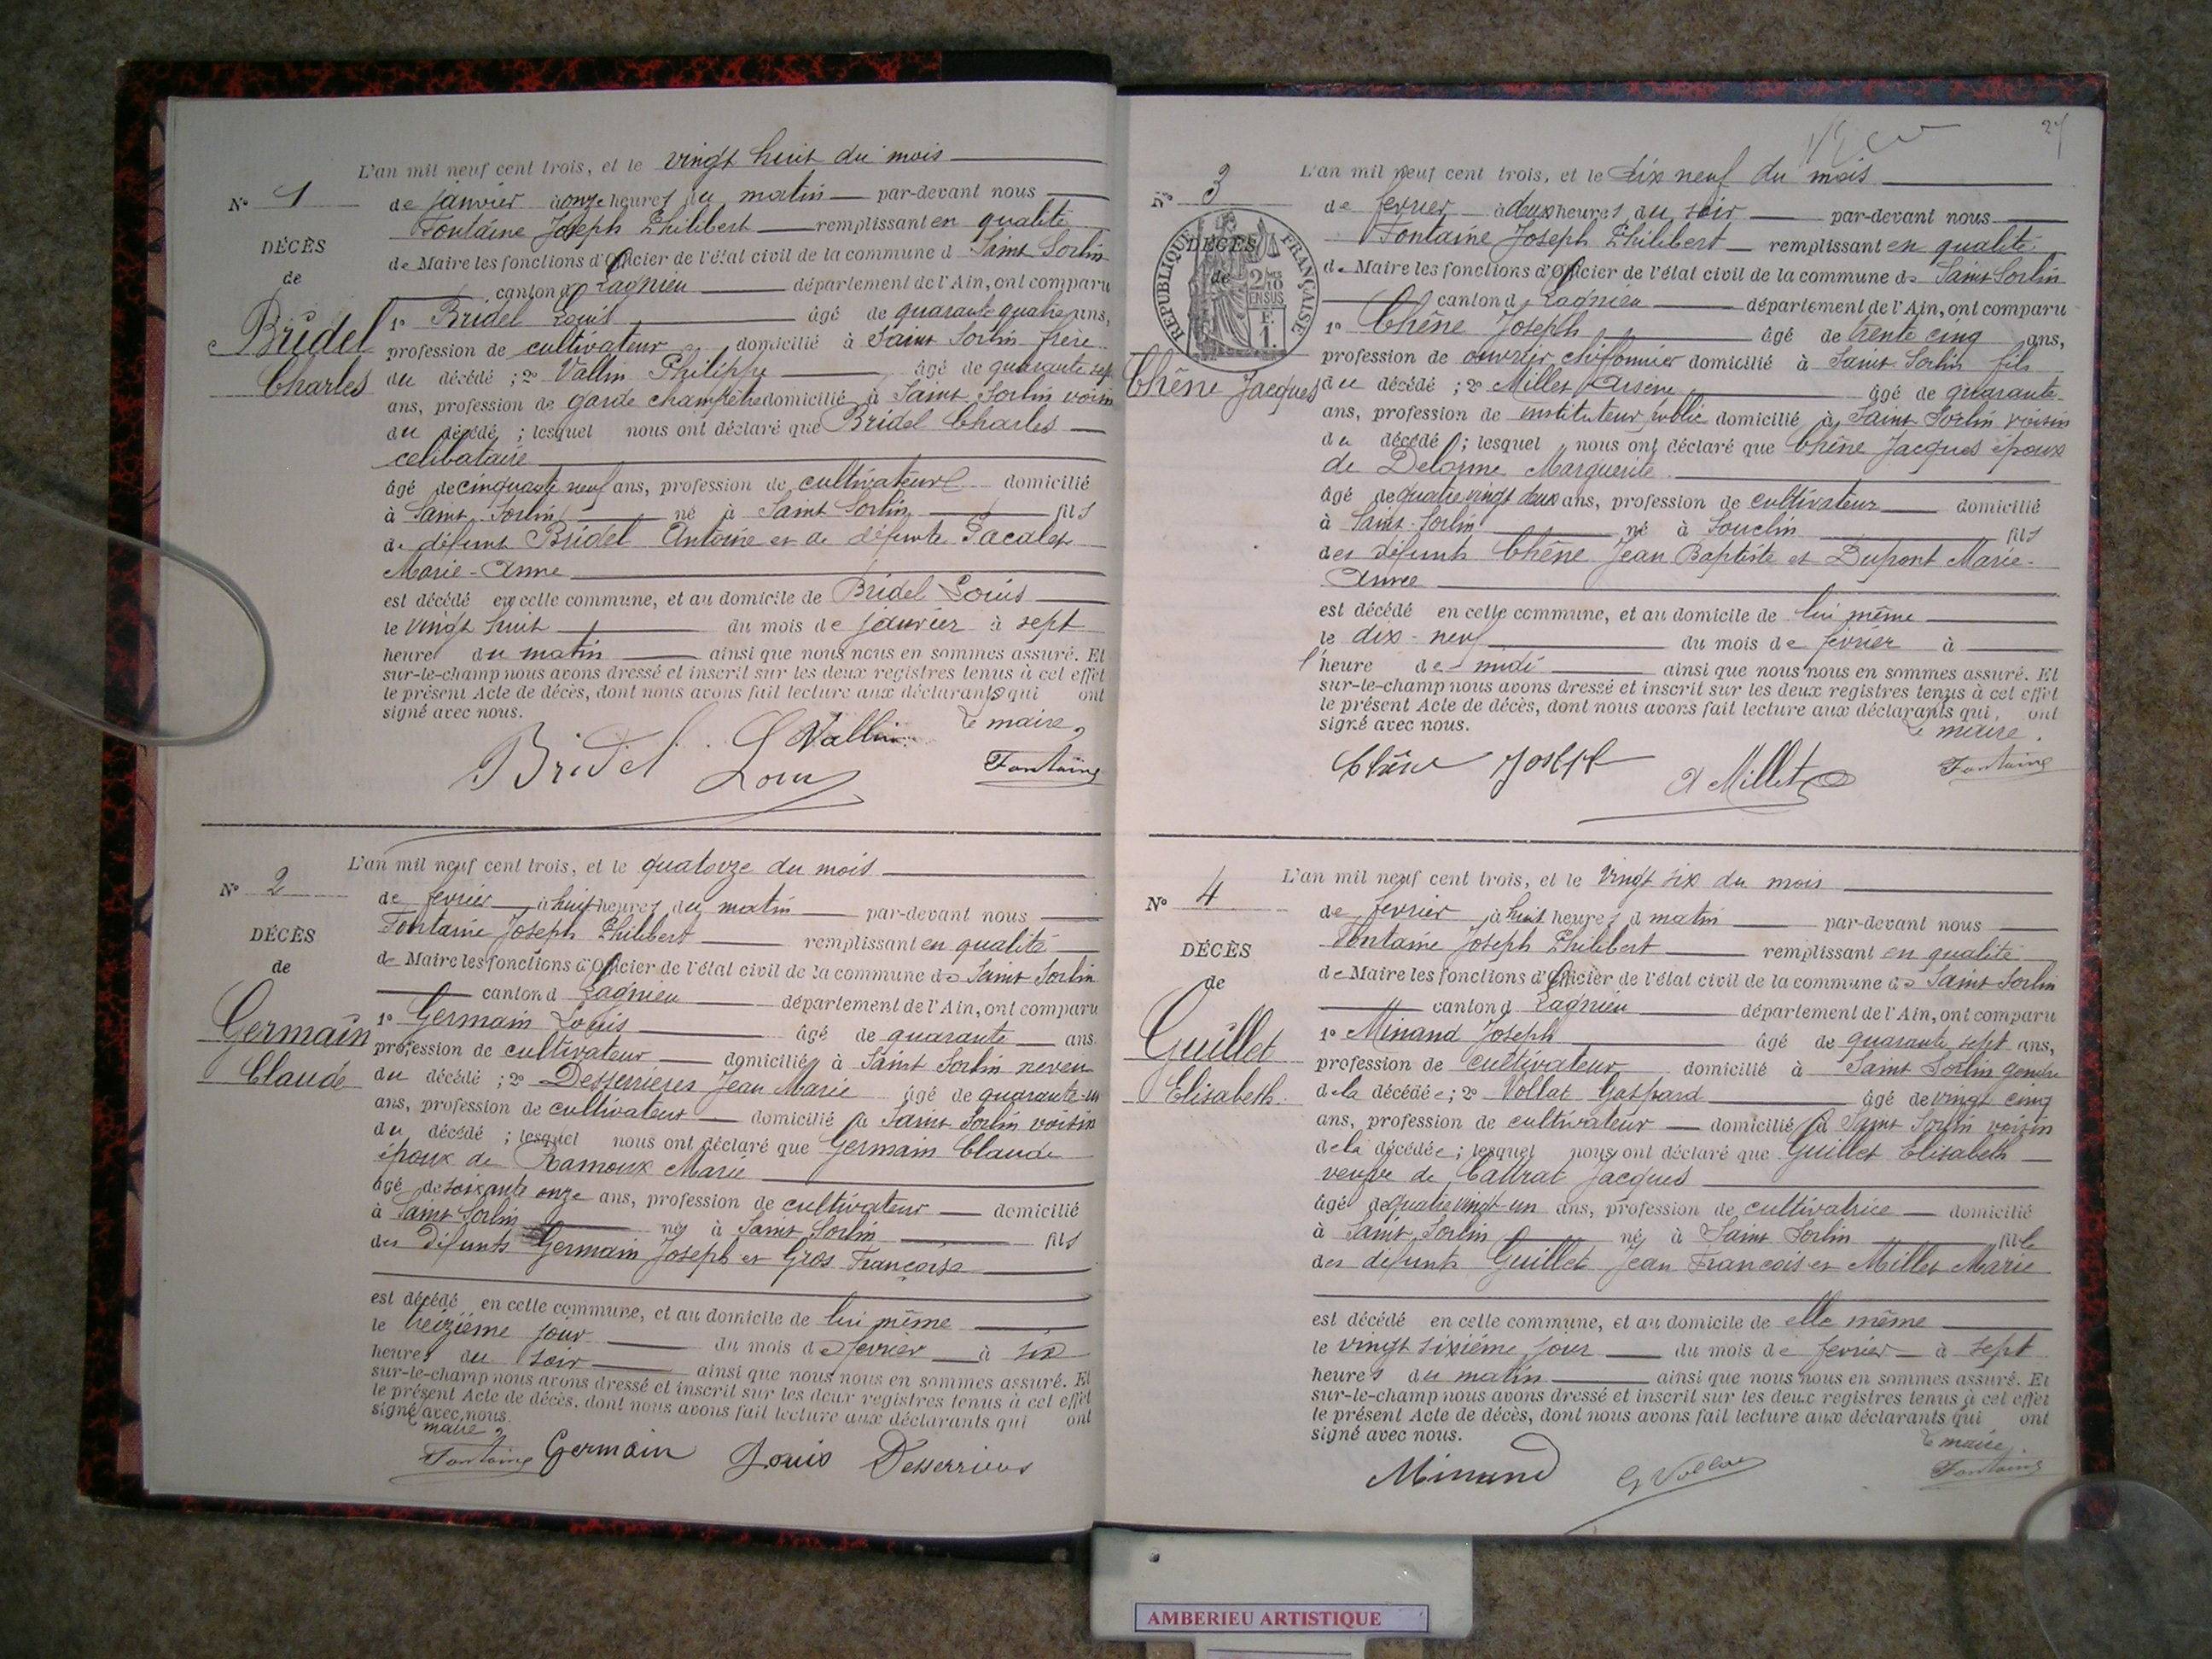 L'an mil neuf cent trois, et le vingt huit du mois
N° 1
de janvier à onze heures du matin par-devant nous
Fontaine Joseph Philibert remplissant en qualité
DÉCÈS
de Maire les fonctions d'Officier de l'état civil de la commune d Saint Sorlin
de
canton d Lagnieu département de l'Ain, ont comparu
Bridel
1° Bridel Louis âgé de quarante quatre ans,
profession de cultivateur domicilié à Saint Sorlin frère
Charles
du décédé ; 2° Vallin Philippe âgé de quarante sept
ans, profession de garde champêtre domicilié à Saint Sorlin voisin
du décédé ; lesquel nous ont déclaré que Bridel Charles
celibataire
âgé de cinquante neuf ans, profession de cultivateur domicilié
à Saint Sorlin né à Saint Sorlin fils
de défunt Bridel Antoine et de défunte Pacalet
Marie-Anne
est décédé en cette commune, et au domicile de Bridel Louis
le vingt huit du mois de janvier à sept
heure du matin ainsi que nous nous en sommes assuré. Et
sur-le-champ nous avons dressé et inscrit sur les deux registres tenus à cet effet
le présent Acte de décès, dont nous avons fait lecture aux déclarants qui ont
signé avec nous.
Le maire,
Bridel Louis Vallin Fontaine
L'an mil neuf cent trois, et le quatorze du mois
N° 2
de fevrier à huit heures du matin par-devant nous
Fontaine Joseph Philibert remplissant en qualité
DÉCÈS
de Maire les fonctions d'Officier de l'état civil de la commune de Saint Sorlin
de
canton d Lagnieu département de l'Ain, ont comparu
Germain
1° Germain Louis âgé de quarante ans
profession de cultivateur domicilié à Saint Sorlin neveu
Claude
du décédé ; 2° Desserrieres Jean Marie âgé de quarante-un
ans, profession de cultivateur domicilié à Saint Sorlin voisin
du décédé ; lesquel nous ont déclaré que Germain Claude
époux de Ramoux Marie
âgé de soixante onze ans, profession de cultivateur domicilié
à Saint Sorlin né à Saint Sorlin fils
des défunts Germain Joseph et Gros Françoise
est décédé en cette commune, et au domicile de lui même
le treizième jour du mois de fevrier à six
heures du soir ainsi que nous nous en sommes assuré. Et
sur-le-champ nous avons dressé et inscrit sur les deux registres tenus à cet effet
le présent Acte de décès, dont nous avons fait lecture aux déclarants qui ont
signé avec nous.
maire,
Fontaine Germain Louis Desserrieres
27
L'an mil neuf cent trois, et le dix neuf du mois
N° 3
de fevrier à deux heures du soir par-devant nous
Fontaine Joseph Philibert remplissant en qualité
DÉCÈS
RÉPUBLIQUE FRANÇAISE
de Maire les fonctions d'Officier de l'état civil de la commune de Saint Sorlin
de
2/10 EN SUS
F. 1.
canton d Lagnieu département de l'Ain, ont comparu
1° Chêne Joseph âgé de trente cinq ans,
profession de ouvrier chifonnier domicilié à Saint Sorlin fils
Chêne Jacques
du décédé ; 2° Millet Arsène âgé de quarante
ans, profession de instituteur public domicilié à Saint Sorlin voisin
du décédé ; lesquel nous ont déclaré que Chêne Jacques époux
de Delorme Marguerite
âgé de quatre vingt deux ans, profession de cultivateur domicilié
à Saint-Sorlin né à Souclin fils
des défunts Chêne Jean Baptiste et Dupont Marie-
Anne
est décédé en cette commune, et au domicile de lui même
le dix-neuf du mois de fevrier à
l'heure de midi ainsi que nous nous en sommes assuré. Et
sur-le-champ nous avons dressé et inscrit sur les deux registres tenus à cet effet
le présent Acte de décès, dont nous avons fait lecture aux déclarants qui ont
signé avec nous.
Le maire.
Chêne Joseph A Millet Fontaine
L'an mil neuf cent trois, et le vingt six du mois
N° 4
de fevrier à huit heures d matin par-devant nous
Fontaine Joseph Philibert remplissant en qualité
DÉCÈS
de Maire les fonctions d'Officier de l'état civil de la commune de Saint Sorlin
de
canton d Lagnieu département de l'Ain, ont comparu
Guillet
1° Minand Joseph âgé de quarante sept ans,
profession de cultivateur domicilié à Saint Sorlin gendre
Elisabeth
de la décédée ; 2° Vollat Gaspard âgé de vingt cinq
ans, profession de cultivateur domicilié à Saint Sorlin voisin
de la décédée ; lesquel nous ont déclaré que Guillet Elisabeth
veuve de Cattrat Jacques
âgé de quatre vingt-un ans, profession de cultivatrice domicilié
à Saint Sorlin né à Saint Sorlin fille
des défunts Guillet Jean Francois et Millet Marie
est décédé en cette commune, et au domicile de elle même
le vingt sixième jour du mois de fevrier à sept
heures du matin ainsi que nous nous en sommes assuré. Et
sur-le-champ nous avons dressé et inscrit sur les deux registres tenus à cet effet
le présent Acte de décès, dont nous avons fait lecture aux déclarants qui ont
signé avec nous.
Le maire,
Minand G Vollat Fontaine
AMBERIEU ARTISTIQUE